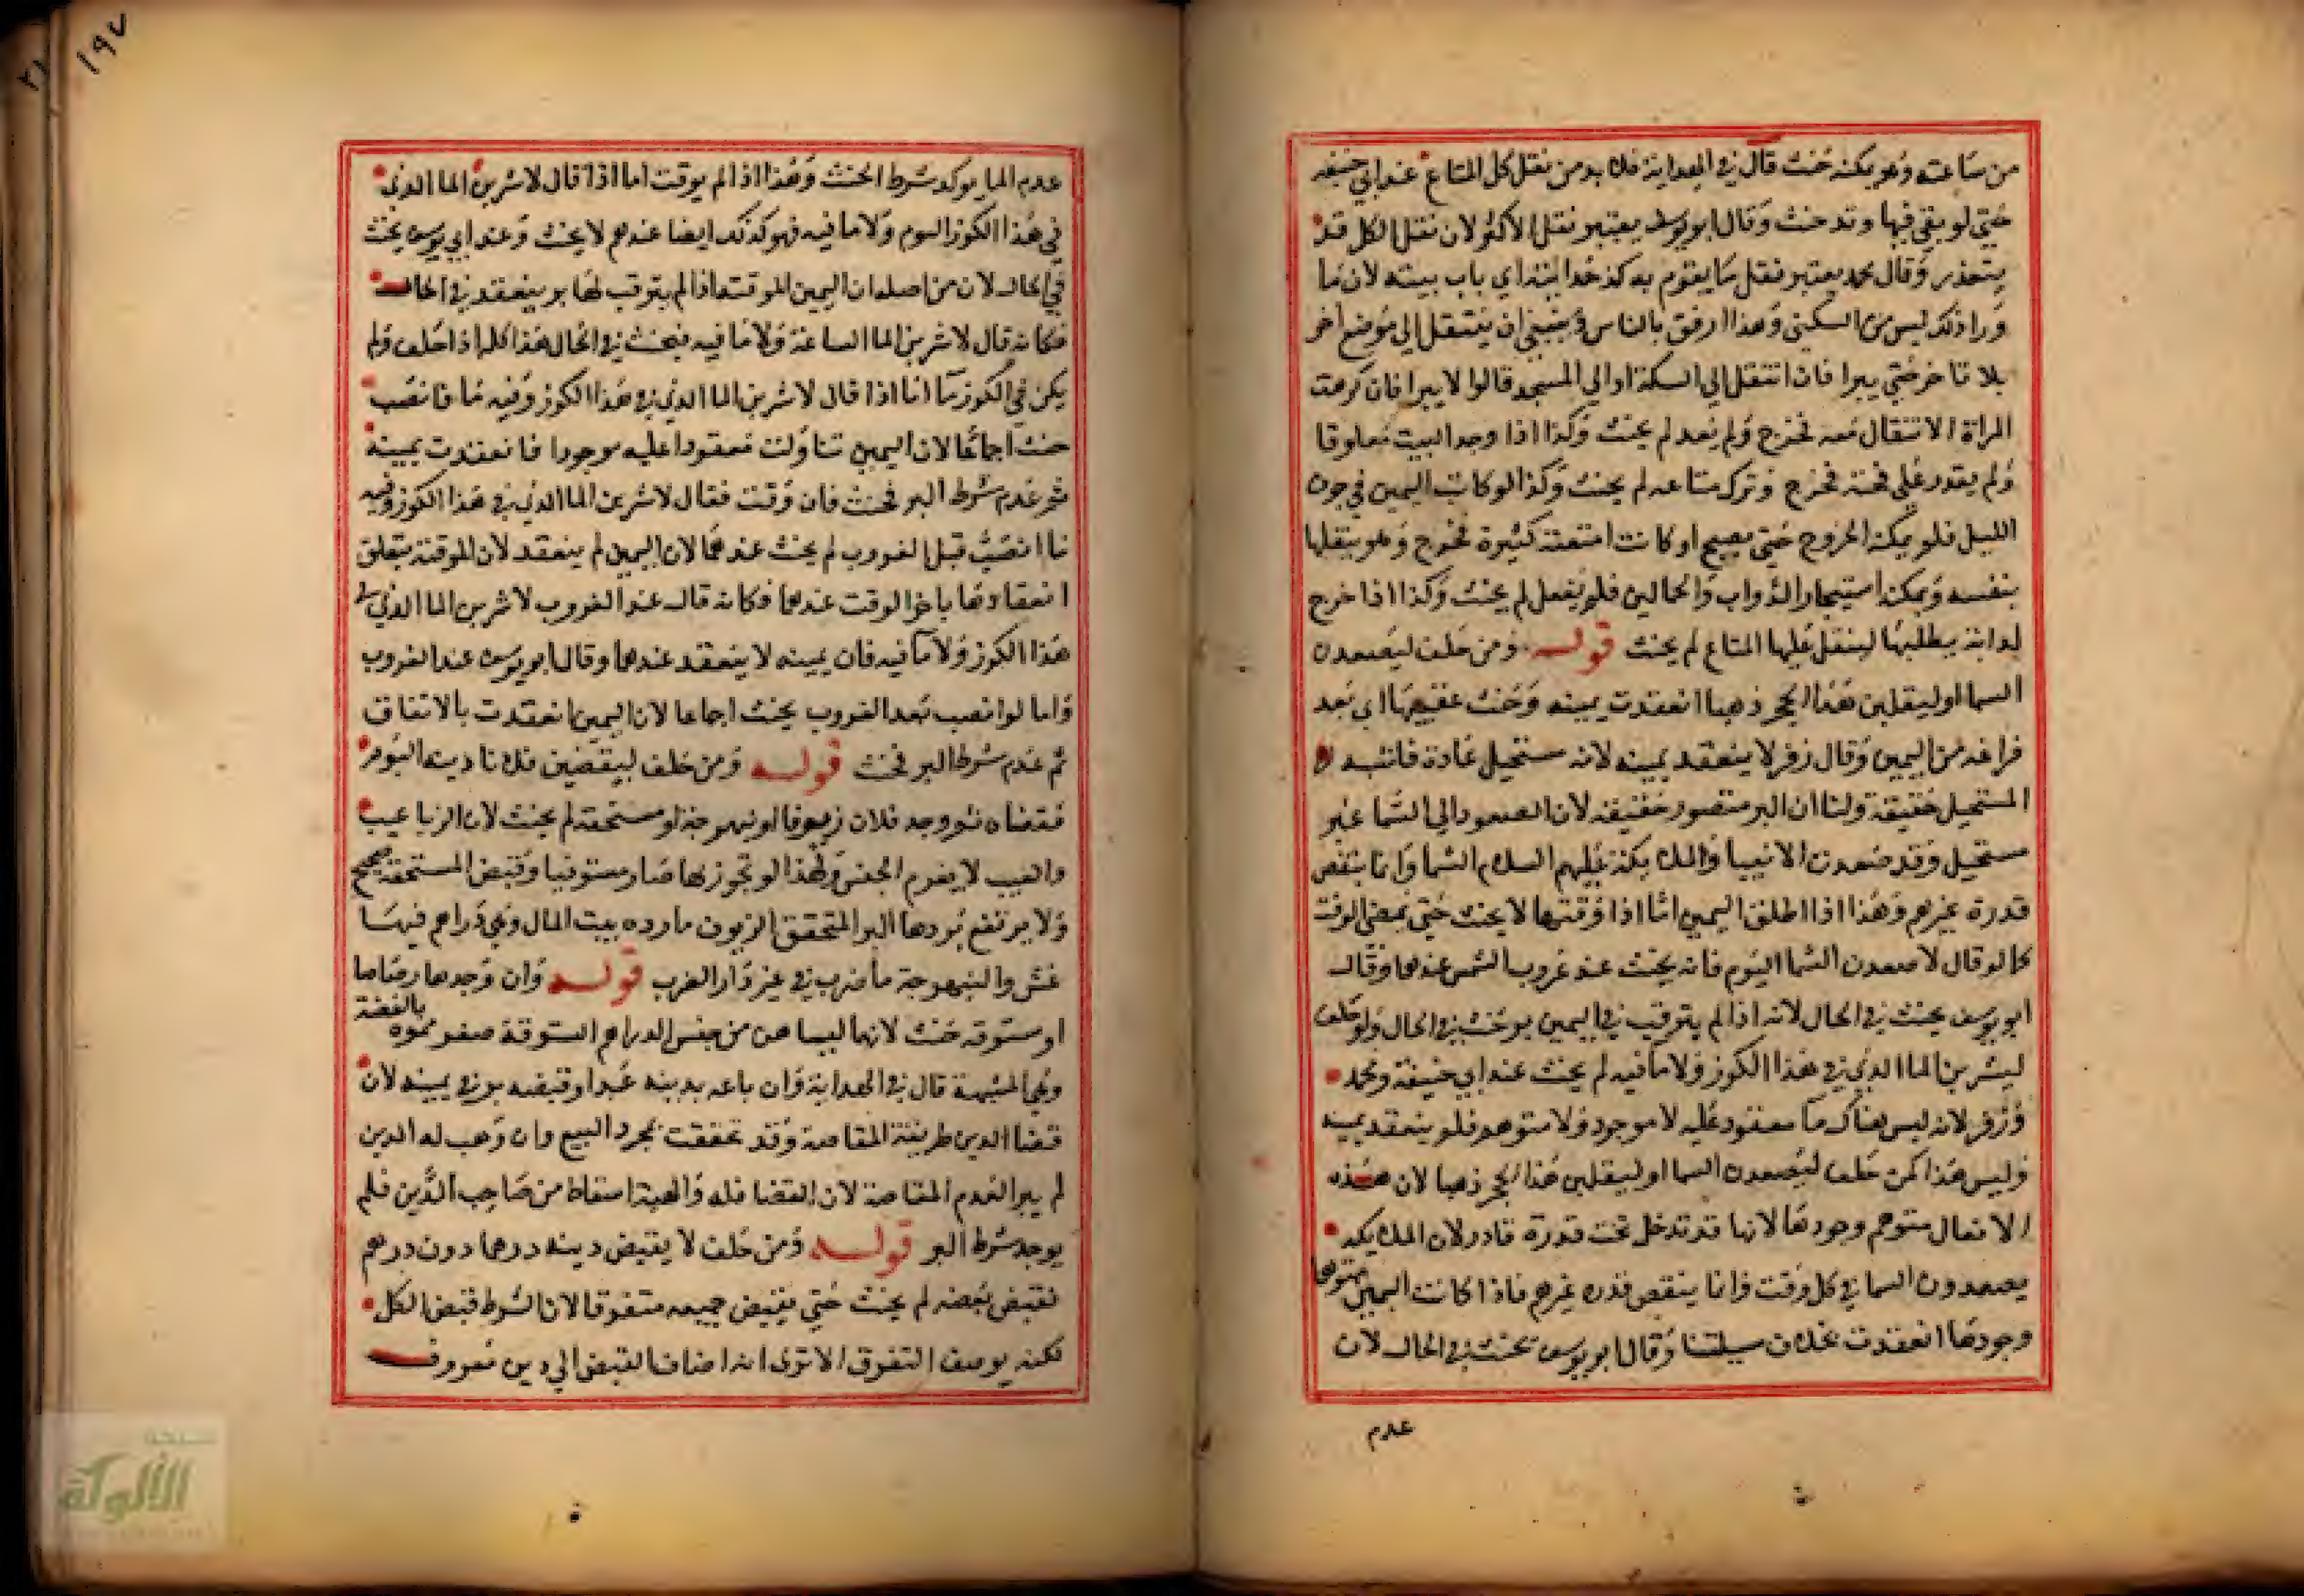 من ساعته وهو يمكنه حنث قال في الهداية فلا بد من نقل كل المتاع عند ابي حنيفه
حتي لو بقي فيها وتد حنث وقال ابو يوسف يعتبر نقل الاكثر لان نقل الكل قد
يتعذر وقال محمد يعتبر نقل ما يقوم به كذخدائيته اي باب بيته لان ما
ورا ذلك ليس من السكني وهذا ارفق بالناس وينبغي ان ينتقل الي موضع اخر
بلا تاخر حتي يبرا فان انتقل الي السكة او الي المسجد قالوا لا يبرا فان كرهت
المراة الانتقال معه فخرج ولم يعد لم يحنث وكذا اذا وجد البيت مغلوقا
ولم يقدر علي فتحه فخرج وترك متاعه لم يحنث وكذا لو كانت اليمين في جوف
الليل فلم يمكنه الخروج حتي يصبح او كانت امتعته كثيرة فخرج وهو ينقلها
بنفسه ويمكنه استيجار الدواب والحمالين فلم يفعل لم يحنث وكذا اذا خرج
لدابة يطلبها لينقل عليها المتاع لم يحنث قوله ومن حلف ليصعدن
السما او ليقلبن هذا الحجر ذهبا انعقدت يمينه وحنث عقيبها اي بعد
فراغه من اليمين وقال زفر لا ينعقد يمينه لانه مستحيل عادة فاشبه
المستحيل حقيقة ولنا ان البر متصور حقيقه لان الصعود الي السما غير
مستحيل وقد صعدت الانبيا والملائكة عليهم السلام السما وانما ينقص
قدرة غيرهم وهذا اذا اطلق اليمين اما اذا وقتها لا يحنث حتي يمضي الوقت
كما لو قال لاصعدن السما اليوم فانه يحنث عند غروب الشمس عندهما وقال
ابو يوسف يحنث في الحال لانه اذا لم يترقب في اليمين بر حنث في الحال ولو حلف
ليشربن الما الذي في هذا الكوز ولا ما فيه لم يحنث عند ابي حنيفة ومحمد
وزفر لانه ليس هناك ما معقود عليه لا موجود ولا متوهم فلم ينعقد يمينه
وليس هذا كمن حلف ليصعدن السما او ليقلبن هذا الحجر ذهبا لان هذه
الافعال متوهم وجودها لانها قد تدخل تحت قدرة قادر لان الملائكة
يصعدون السما في كل وقت وانما ينقص قدره غيرهم فاذا كانت اليمين متوهما
وجودها انعقدت بخلاف مسيلتنا وقال ابو يوسف يحنث في الحال لان
عدم
١٩٧
عدم الما يوكد شرط الحنث وهذا اذا لم يوقت اما اذا قال لاشربن الما الذي
في هذا الكوز اليوم ولا ما فيه فهو كذلك ايضا عندهم لا يحنث وعند ابي يوسف يحنث
في الحال لان من اصله ان اليمين الموقتة اذا لم يترقب لها بر ينعقد في الحال
فكانه قال لاشربن الما الساعة ولا ما فيه فيحنث في الحال هذا كله اذا حلف ولم
يكن في الكوز ما اما اذا قال لاشربن الما الذي في هذا الكوز وفيه ما فانصب
حنث اجماعا لان اليمين تناولت معقودا عليه موجودا فانعقدت يمينه
ثم عدم شرط البر فحنث فان وقت فقال لاشربن الما الذي في هذا الكوز وفيه
ما انصب قبل الغروب لم يحنث عندهما لان اليمين لم ينعقد لان الموقتة يتعلق
انعقادها باخر الوقت عندهما فكانه قال عند الغروب لاشربن الما الذي في
هذا الكوز ولا ما فيه فان يمينه لا ينعقد عندهما وقال ابو يوسف عند الغروب
واما لو انصب بعد الغروب يحنث اجماعا لان اليمين انعقدت بالاتفاق
ثم عدم شرط البر فحنث قوله ومن حلف ليقضين فلانا دينه اليوم
فقضاه ثم وجد فلان زيوفا او نبهرجة او مستحقة لم يحنث لان الزيا عيب
والعيب لا يعدم الجنس ولهذا لو تجوز بها صار مستوفيا وقبض المستحقة صحيح
ولا يرتفع بردها البر المتحقق الزيوف ما رده بيت المال وهي دراهم فيها
غش والنبهرجة ما ضرب في غير دار الضرب قوله وان وجدها رصاصا
او ستوقه حنث لانهما ليسا من جنس الدراهم الستوقة صفر مموه بالفضة
وهي المشبهة قال في الهداية وان باعه بدينه عبدا وقبضه بر في يمينه لان
قضا الدين طريقة المقاصة وقد تحققت بمجرد البيع وان وهب له الدين
لم يبر لعدم المقاصة لان القضا فعله والهبة اسقاط من صاحب الدين فلم
يوجد شرط البر قوله ومن حلف لا يقبض دينه درهما دون درهم
فقبض بعضه لم يحنث حتي يقبض جميعه متفرقا لان الشرط قبض الكل
لكنه بوصف التفرق الا تري انه اضاف القبض الي دين معروف
الألوكة